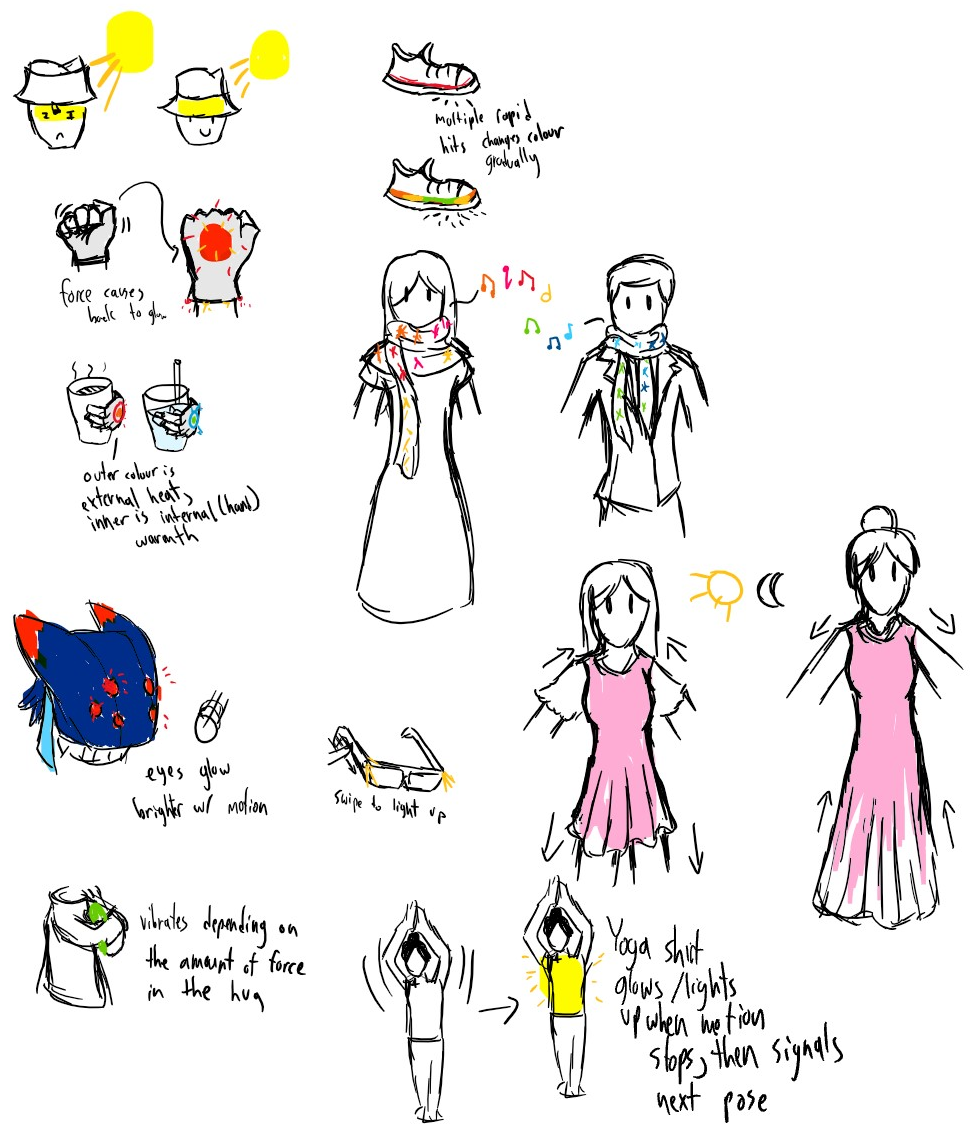 multiple rapid
hits changes colour
gradually
force causes
back to glow
outer colour is
external heat,
inner is internal (hand)
warmth
eyes glow
brighter w/ motion
swipe to light up
vibrates depending on
the amount of force
in the hug
Yoga shirt
glows /lights
up when motion
stops, then signals
next pose